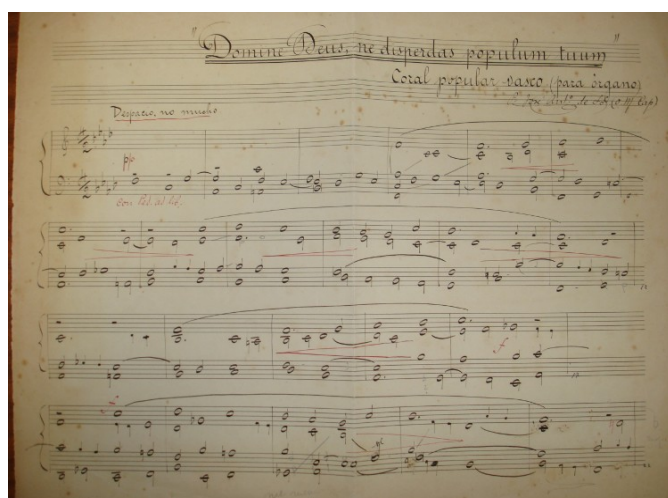 "Domine Deus, ne disperdas populum tuum"
Coral popular vasco (para órgano)
Despacio, no mucho
pp
con Ped. ad lib.
f